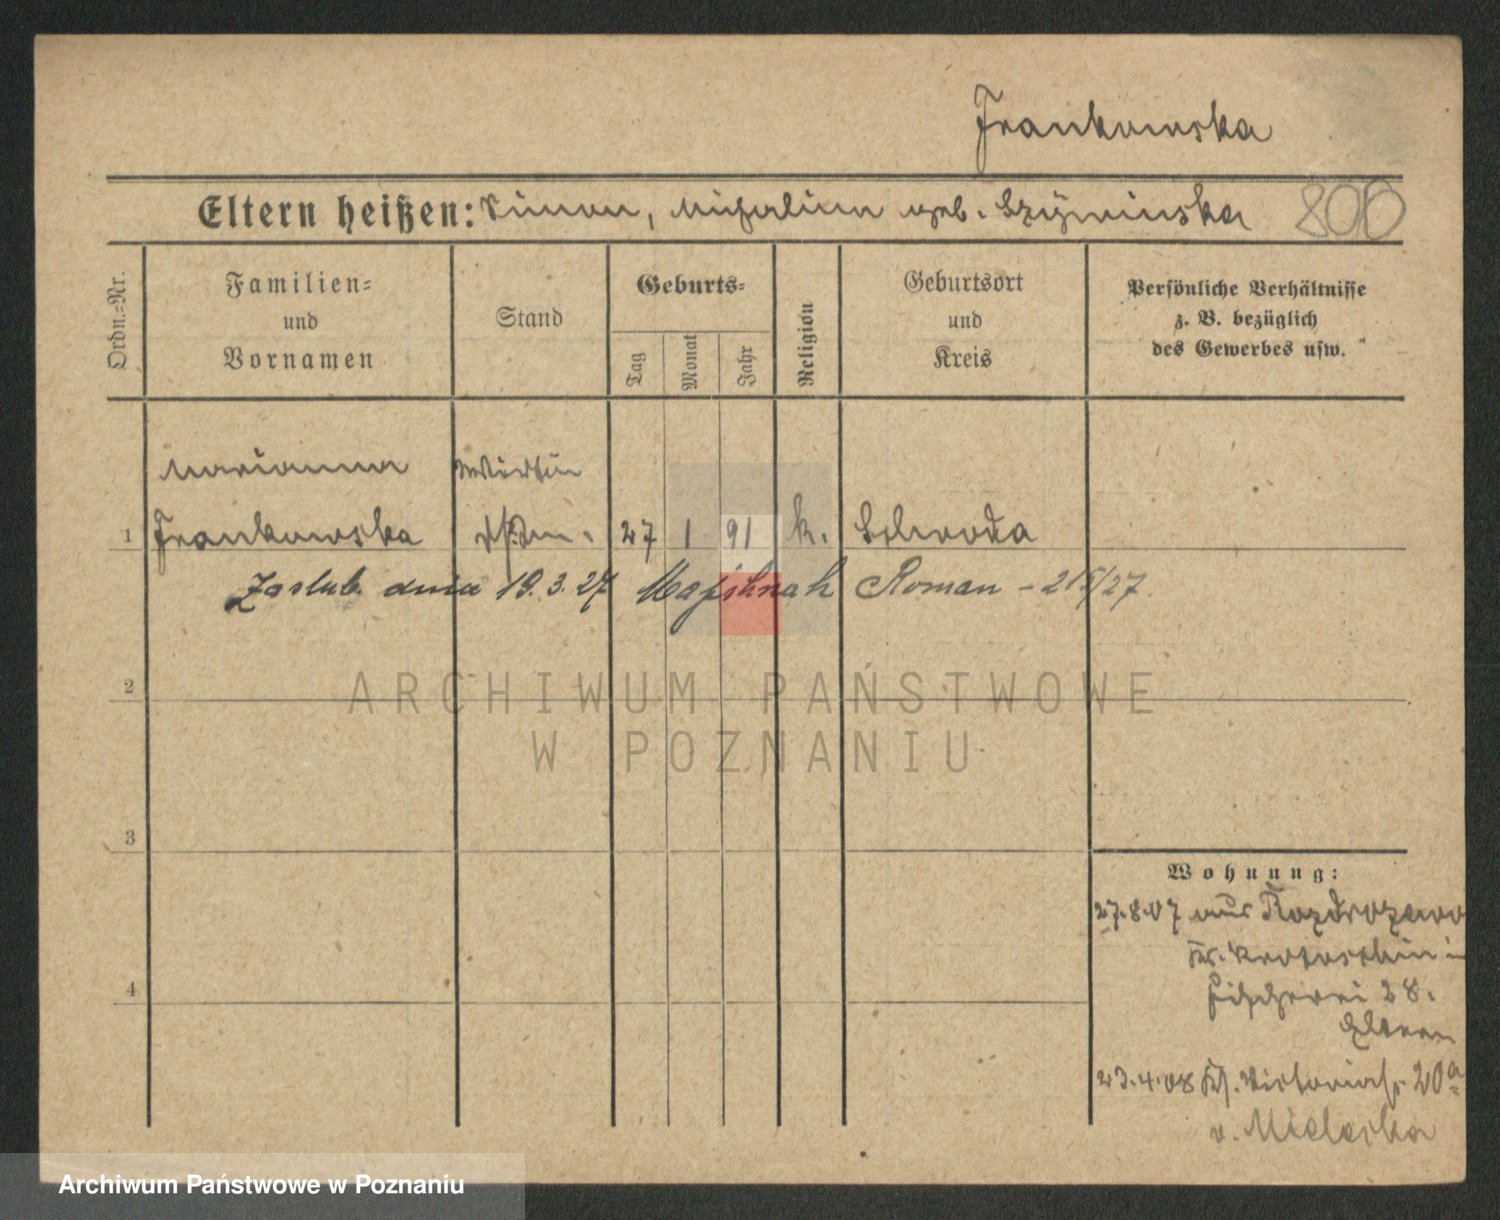 Frankowska
Eltern heißen: Simon, Michalina geb. Szyminska 806
Ordn.=Nr.
Familien=
und
Vornamen
Stand
Geburts=
Tag
Monat
Jahr
Religion
Geburtsort
und
Kreis
Persönliche Verhältnisse
z. B. bezüglich
des Gewerbes usw.
Marianna
1 Frankowska 27 1 91 k. Schroda
Zaslub. dnia 19.3.27 Roman - 21/5/27
2
3
4
Wohnung:
27.8.07 aus
Kr. Krotoschin in
Fischerei 28.
Eltern
23.4.08 Kl. Victoriast. 20a
v. Mielecka
ARCHIWUM PAŃSTWOWE
W POZNANIU
Archiwum Państwowe w Poznaniu